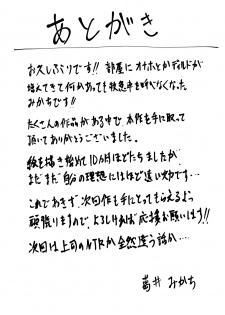 あとがき
お久しぶりです!! 部屋にオナホとかディルドが
増えてきて何かあっても救急車を呼べなくなった
みかちです!!
たくさんの作品がある中で、本作を手に取って
頂いてありがとうございました。
絵を描き始めて10ヵ月ほどたちましたが、
まだまだ自分の理想にはほど遠い効です…
これであきず、次回作も手にとってもらえるよう
頑張りますので、よろしければ応援お願いします!!
次回は上司のNTRか全然違う話か…
葛井 みかち